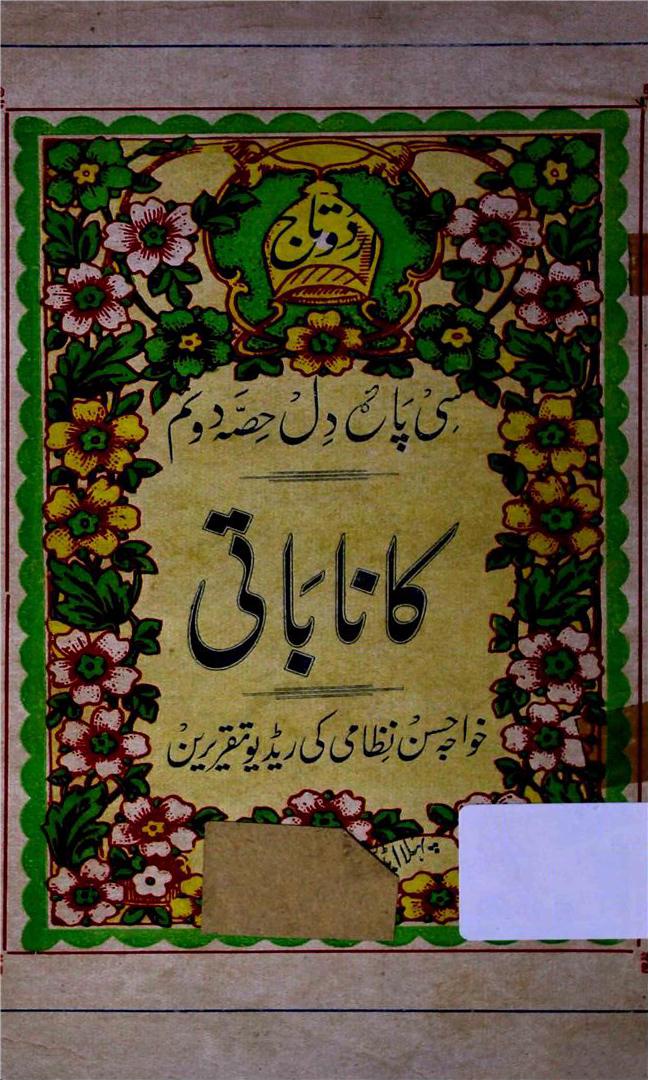 دو تاج
سی پارۂ دل حصّہ دوئم
کانا باتی
خواجہ حسن نظامی کی ریڈیو تقریریں
پہلا